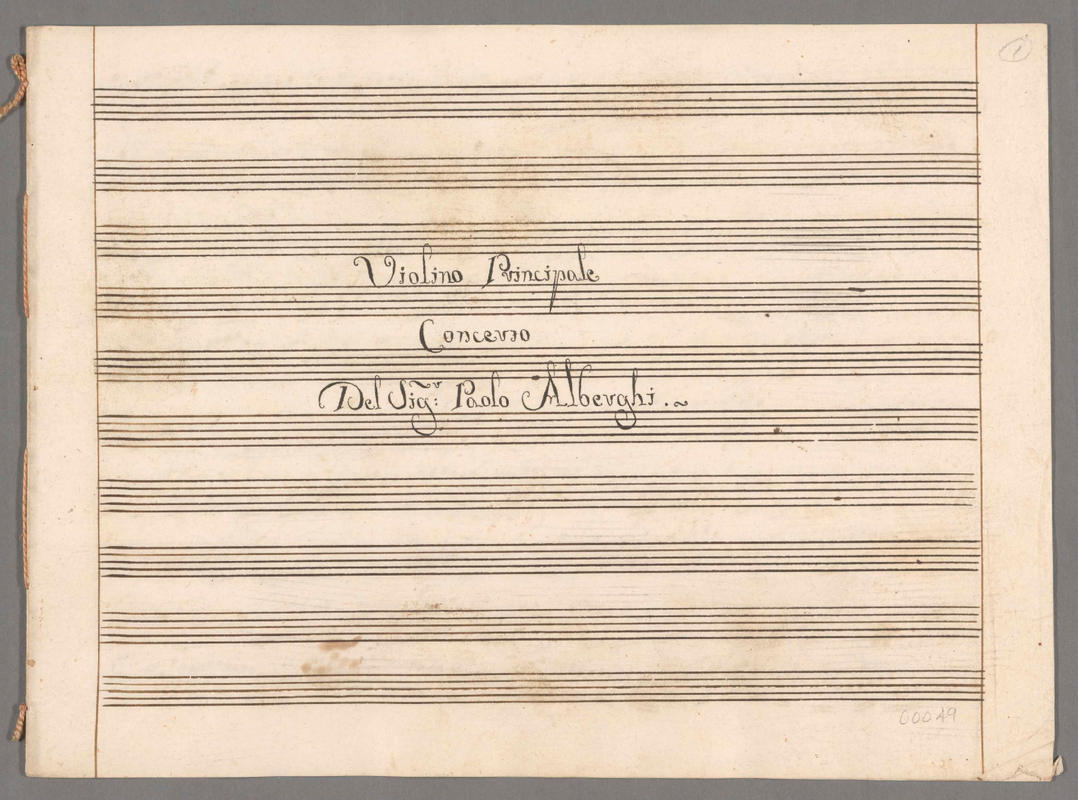 1
Violino Principale
Concerto
Del Sig.r Paolo Alberghi.~
00049